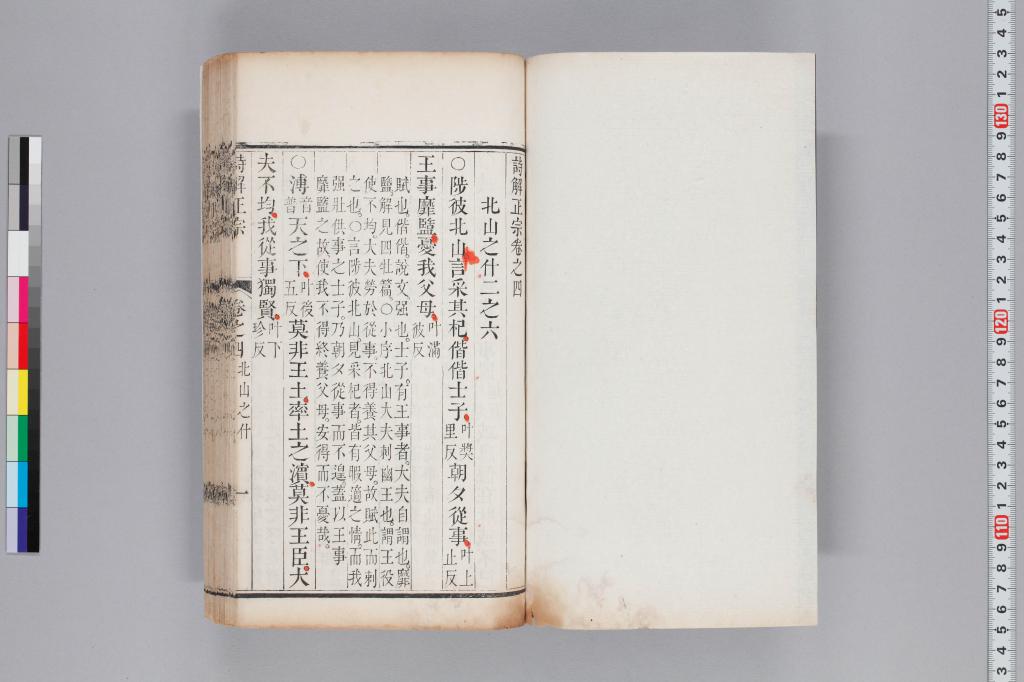 詩解正宗卷之四
北山之什二之六
○陟彼北山言采其杞偕偕士子叶奬里反朝夕從事叶上止反
王事靡盬憂我父母叶滿彼反
賦也偕偕說文强也士子有王事者大夫自謂也靡
盬解見四牡篇○小序北山大夫刺幽王也謂王役
使不均大夫勞於從事不得養其父母故賦此而刺
之也○言陟彼北山見采杞者皆有暇適之情而我
强壯供事之士子乃朝夕從事而不遑蓋以王事
靡盬之故使我不得終養父母安得而不憂哉
○溥音普天之下叶後五反莫非王土率土之濱莫非王臣大
夫不均我從事獨賢叶下珍反
詩解正宗 卷之四 北山之什 一
5 4 3 2 1 130 9 8 7 6 5 4 3 2 1 120 9 8 7 6 5 4 3 2 1 110 9 8 7 6 5 4 3